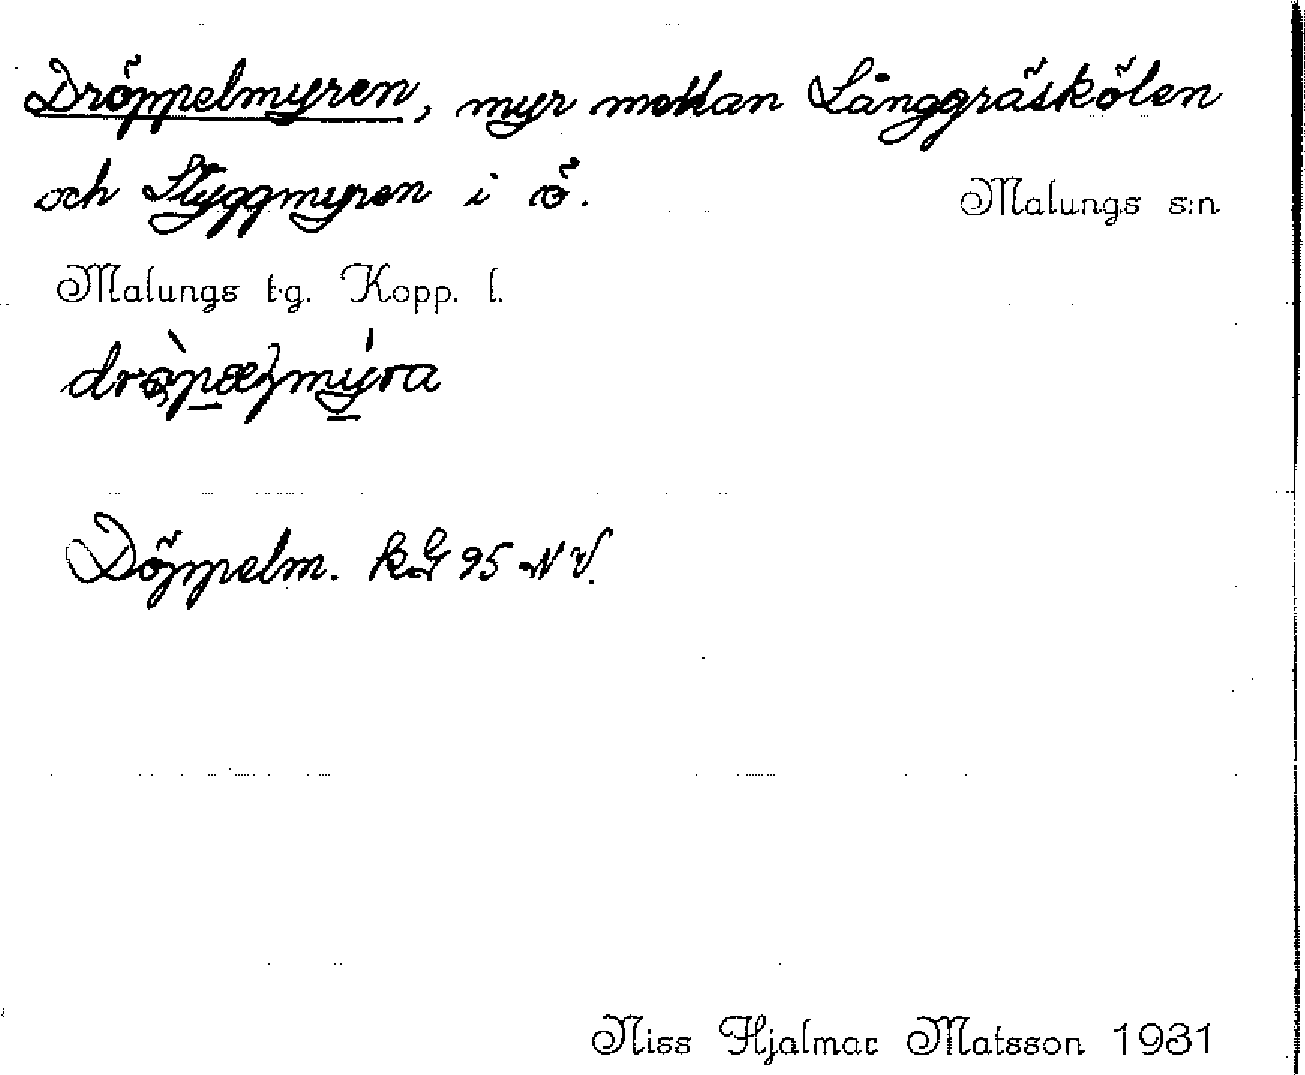 Dröppelmyren, myr mellan Långgräskölen
och Styggmyren i ö. Malungs s:n
Malungs t.g. Kopp. l.
Döppelm. kG 95 NV.
Niss Hjalmar Matsson 1931